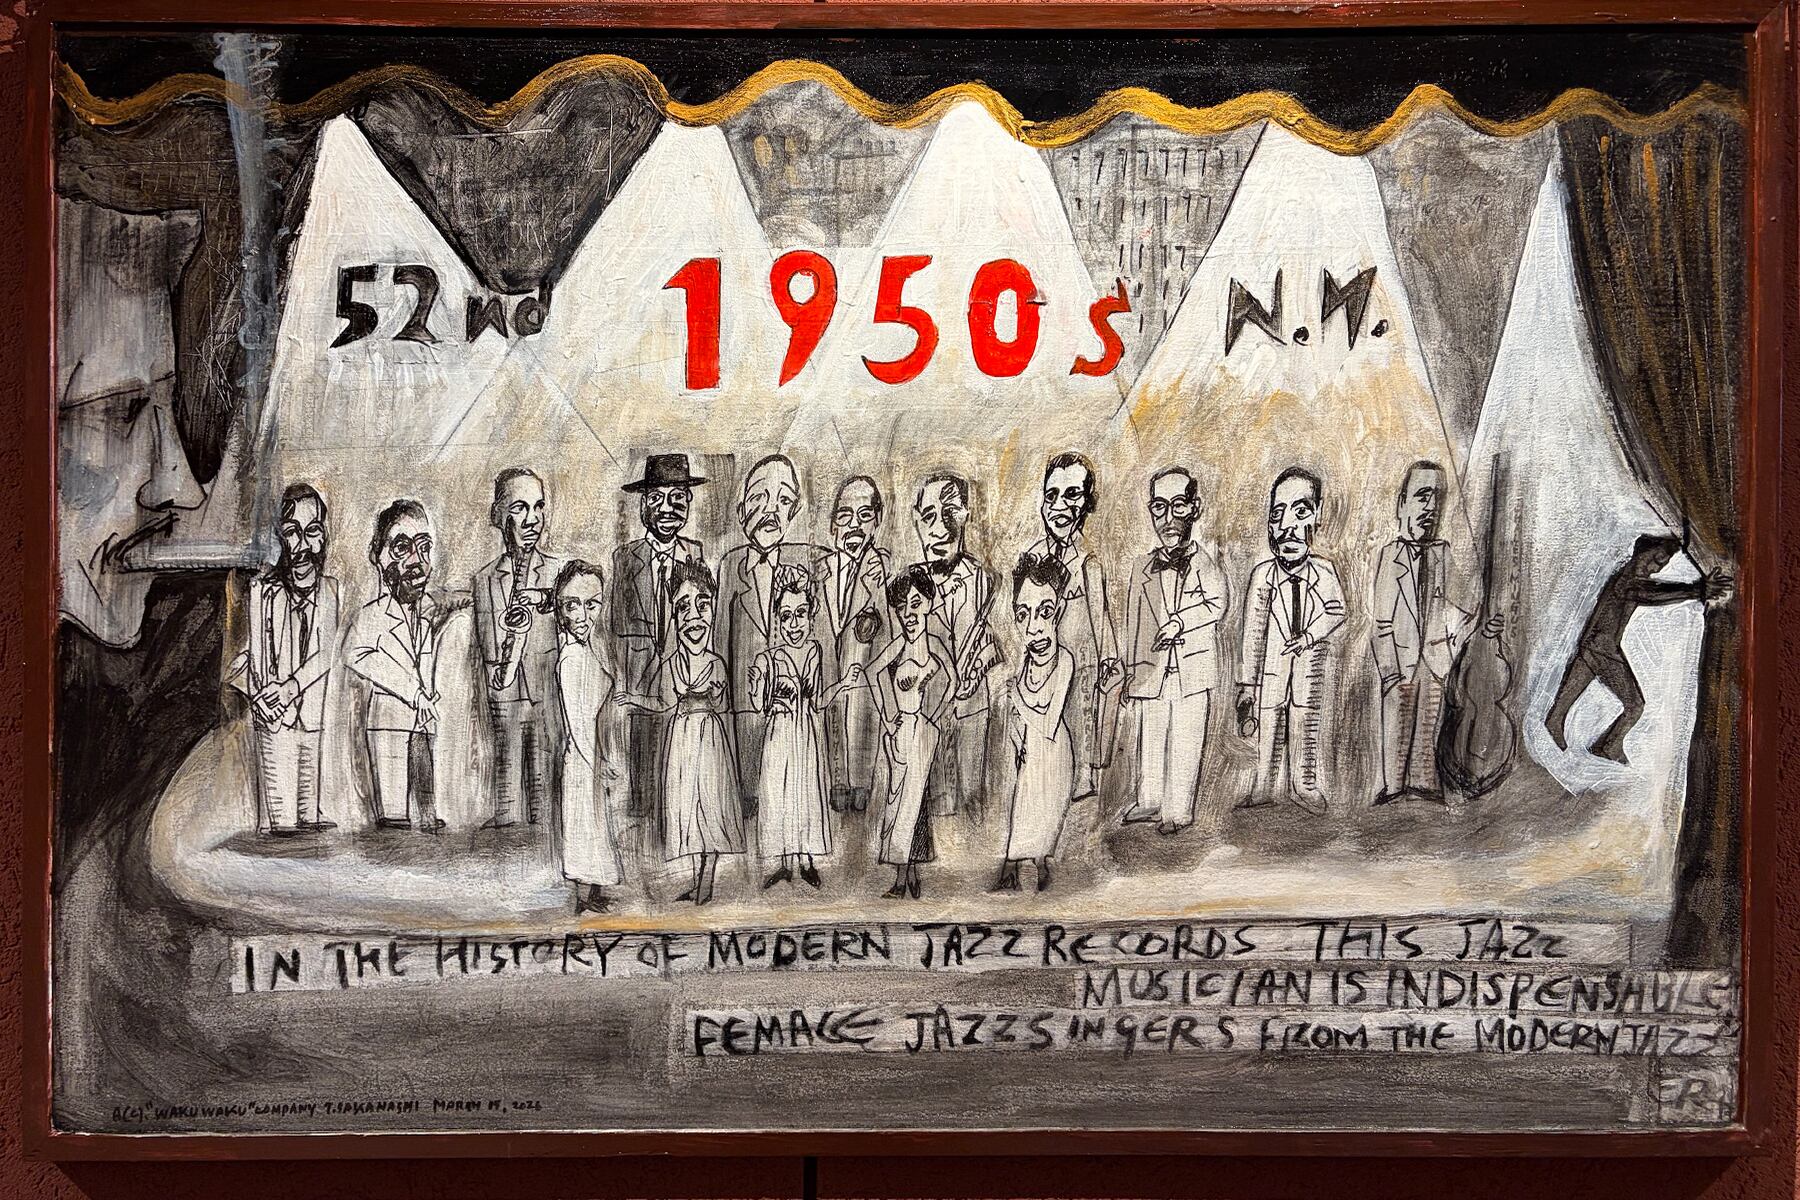 52nd 1950s N.Y.
IN THE HISTORY OF MODERN JAZZ RECORDS THIS JAZZ
MUSICIAN IS INDISPENSHBLE,
FEMALE JAZZ SINGERS FROM THE MODERN JAZZ
ERA
"WAKUWAKU" COMPANY T.SAKANASHI MARCH 15, 2026